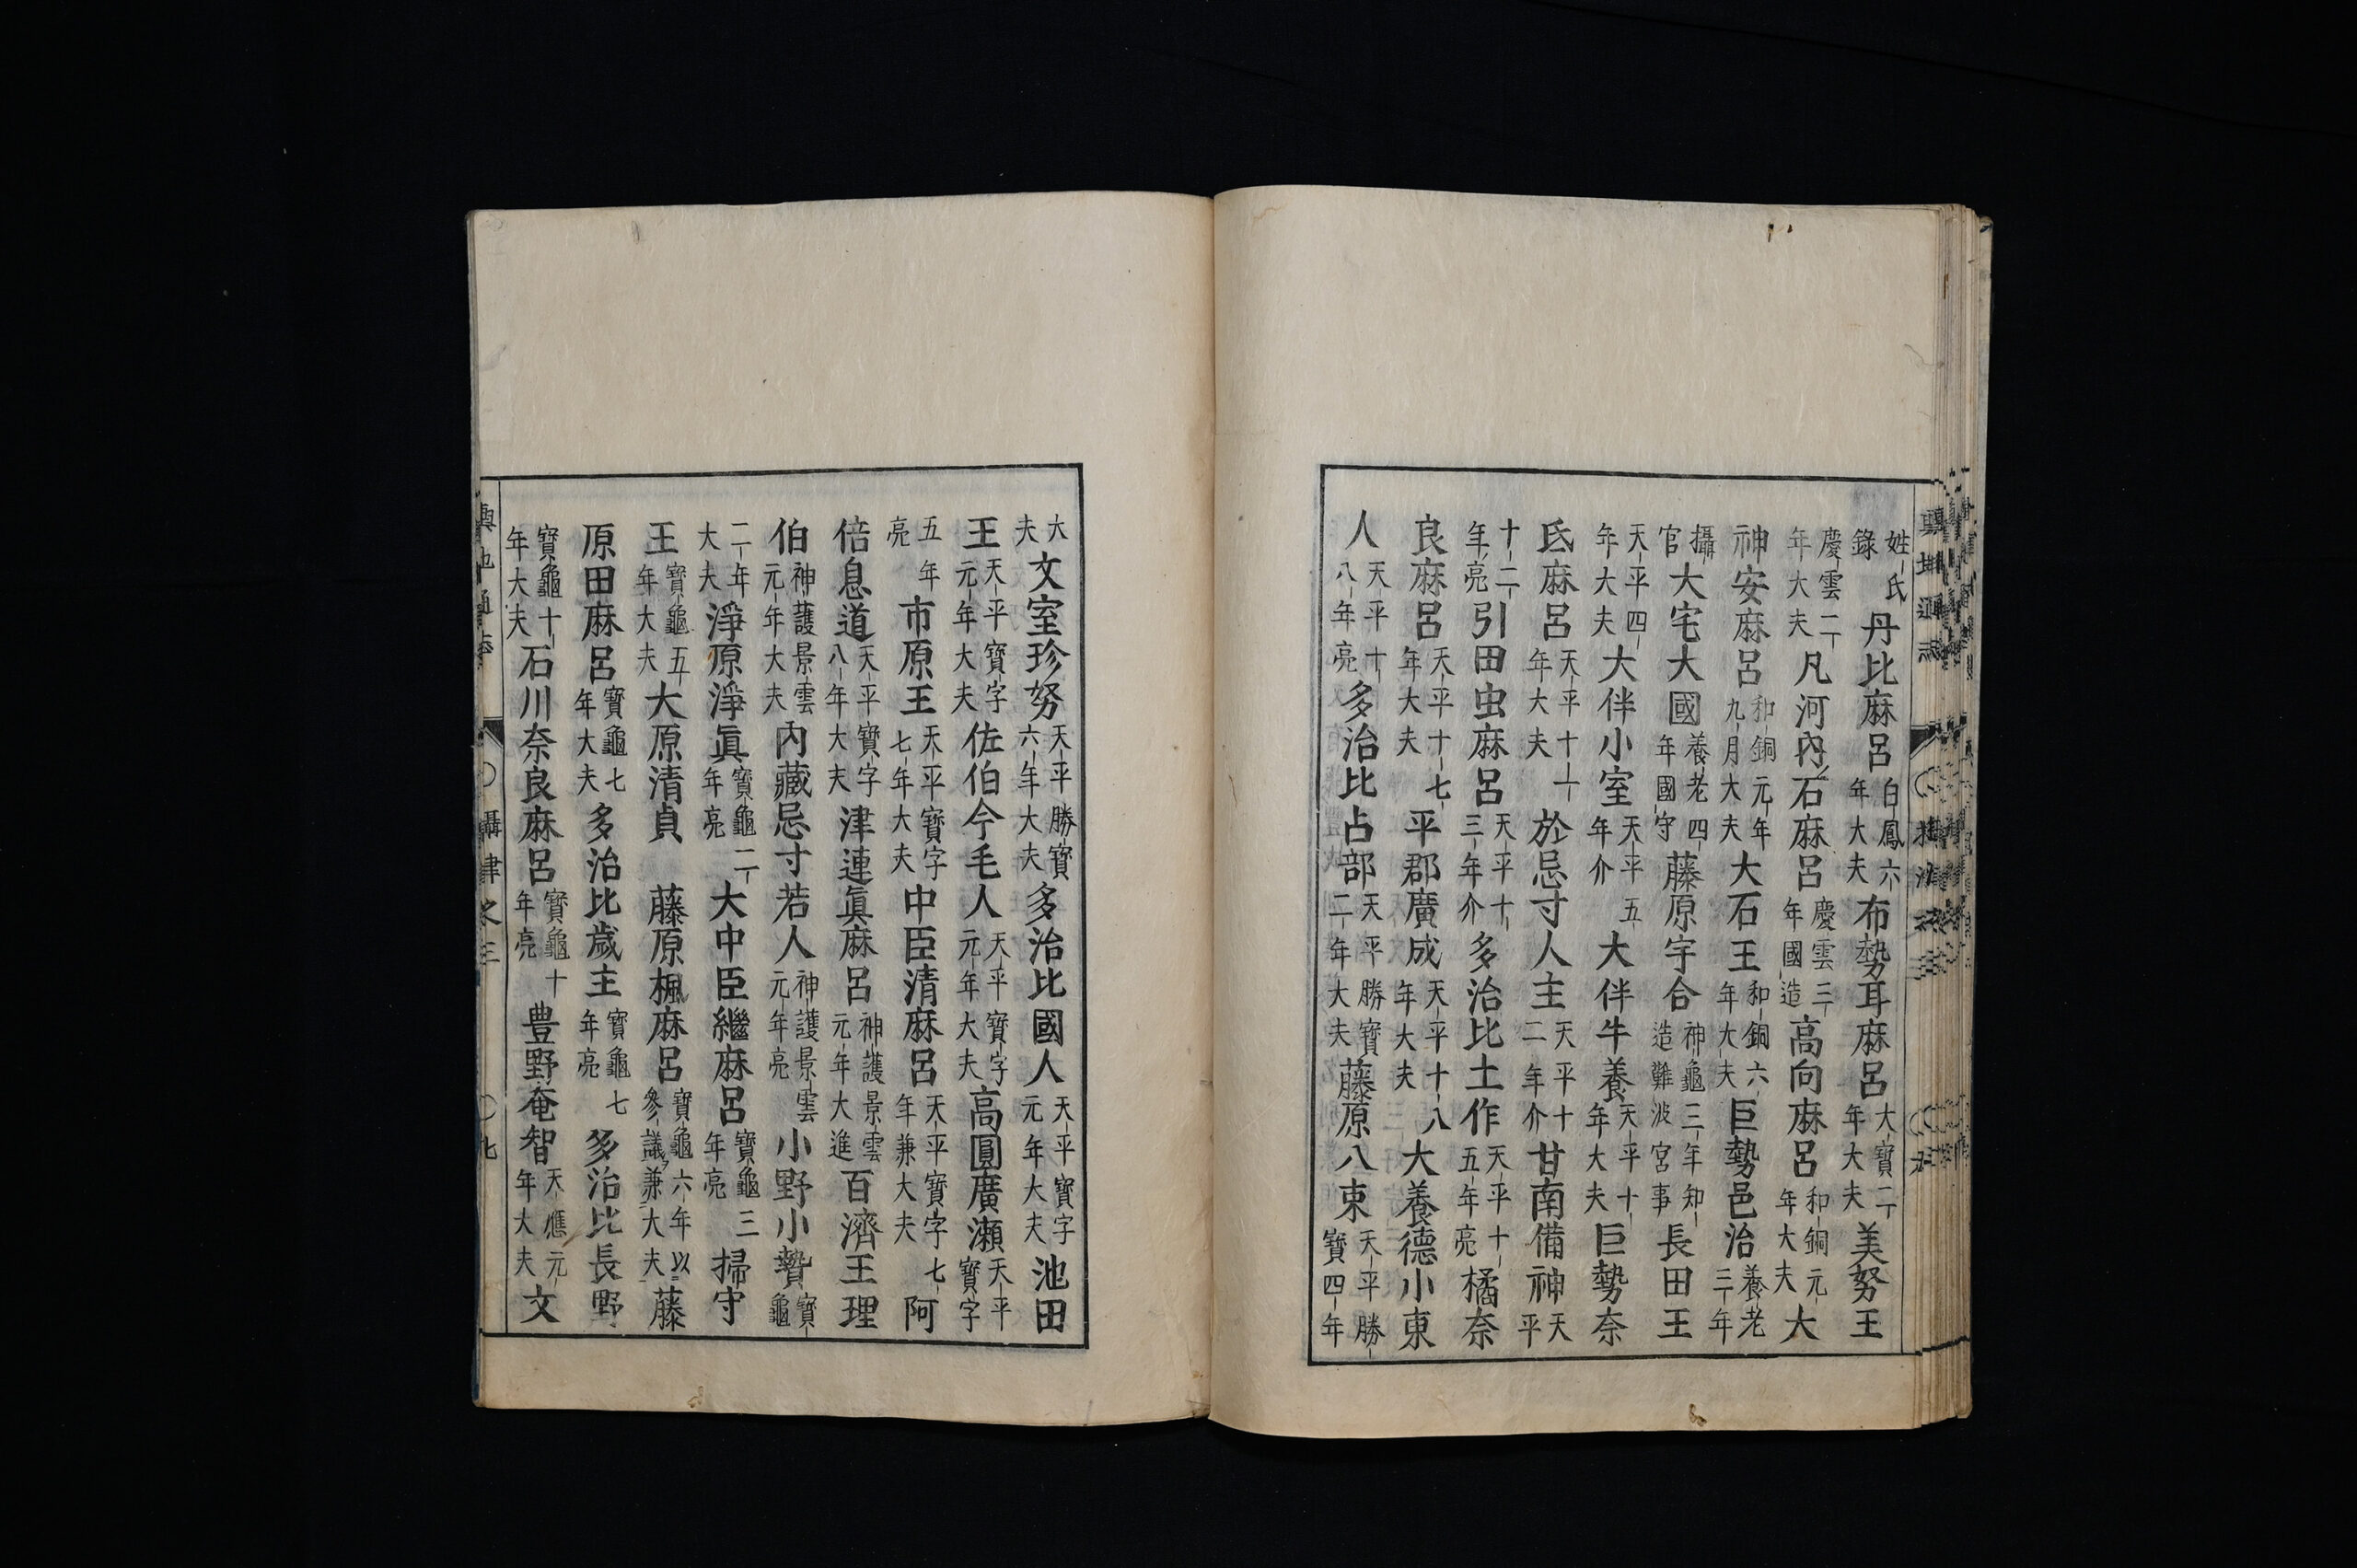 姓氏錄丹比麻呂白鳳六年大夫布勢耳麻呂大寶二年大夫美努王
慶雲二年大夫凡河內石麻呂慶雲三年國造高向麻呂和銅元年大夫大
神安麻呂和銅元年九月大夫大石王和銅六年大夫巨勢邑治養老三年
攝官大宅大國養老四年國守藤原宇合神龜三年知造難波宮事長田王
天平四年大夫大伴小室天平五年介大伴牛養天平十年大夫巨勢奈
氐麻呂天平十一年大夫於忌寸人主天平十二年介甘南備神天平
十二年亮引田虫麻呂天平十三年介多治比土作天平十五年亮橘奈
良麻呂天平十七年大夫平郡廣成天平十八年大夫大養德小東
人天平十八年亮多治比占部天平勝寶二年大夫藤原八束天平勝寶四年
大夫文室珍努天平勝寶六年大夫多治比國人天平寶字元年大夫池田
王天平寶字元年大夫佐伯今毛人天平寶字元年大夫高圓廣瀬天平寶字
五年亮市原王天平寶字七年大夫中臣清麻呂天平寶字七年兼大夫阿
倍息道天平寶字八年大夫津連眞麻呂神護景雲元年大進百濟王理
伯神護景雲元年大夫內藏忌寸若人神護景雲元年亮小野小贄寶龜
二年大夫淨原淨眞寶龜二年亮大中臣繼麻呂寶龜三年亮掃守
王寶龜五年大夫大原清貞藤原楓麻呂寶龜六年以參議兼大夫藤
原田麻呂寶龜七年大夫多治比歲主寶龜七年亮多治比長野
寶龜十年大夫石川奈良麻呂寶龜十年亮豊野奄智天應元年大夫文